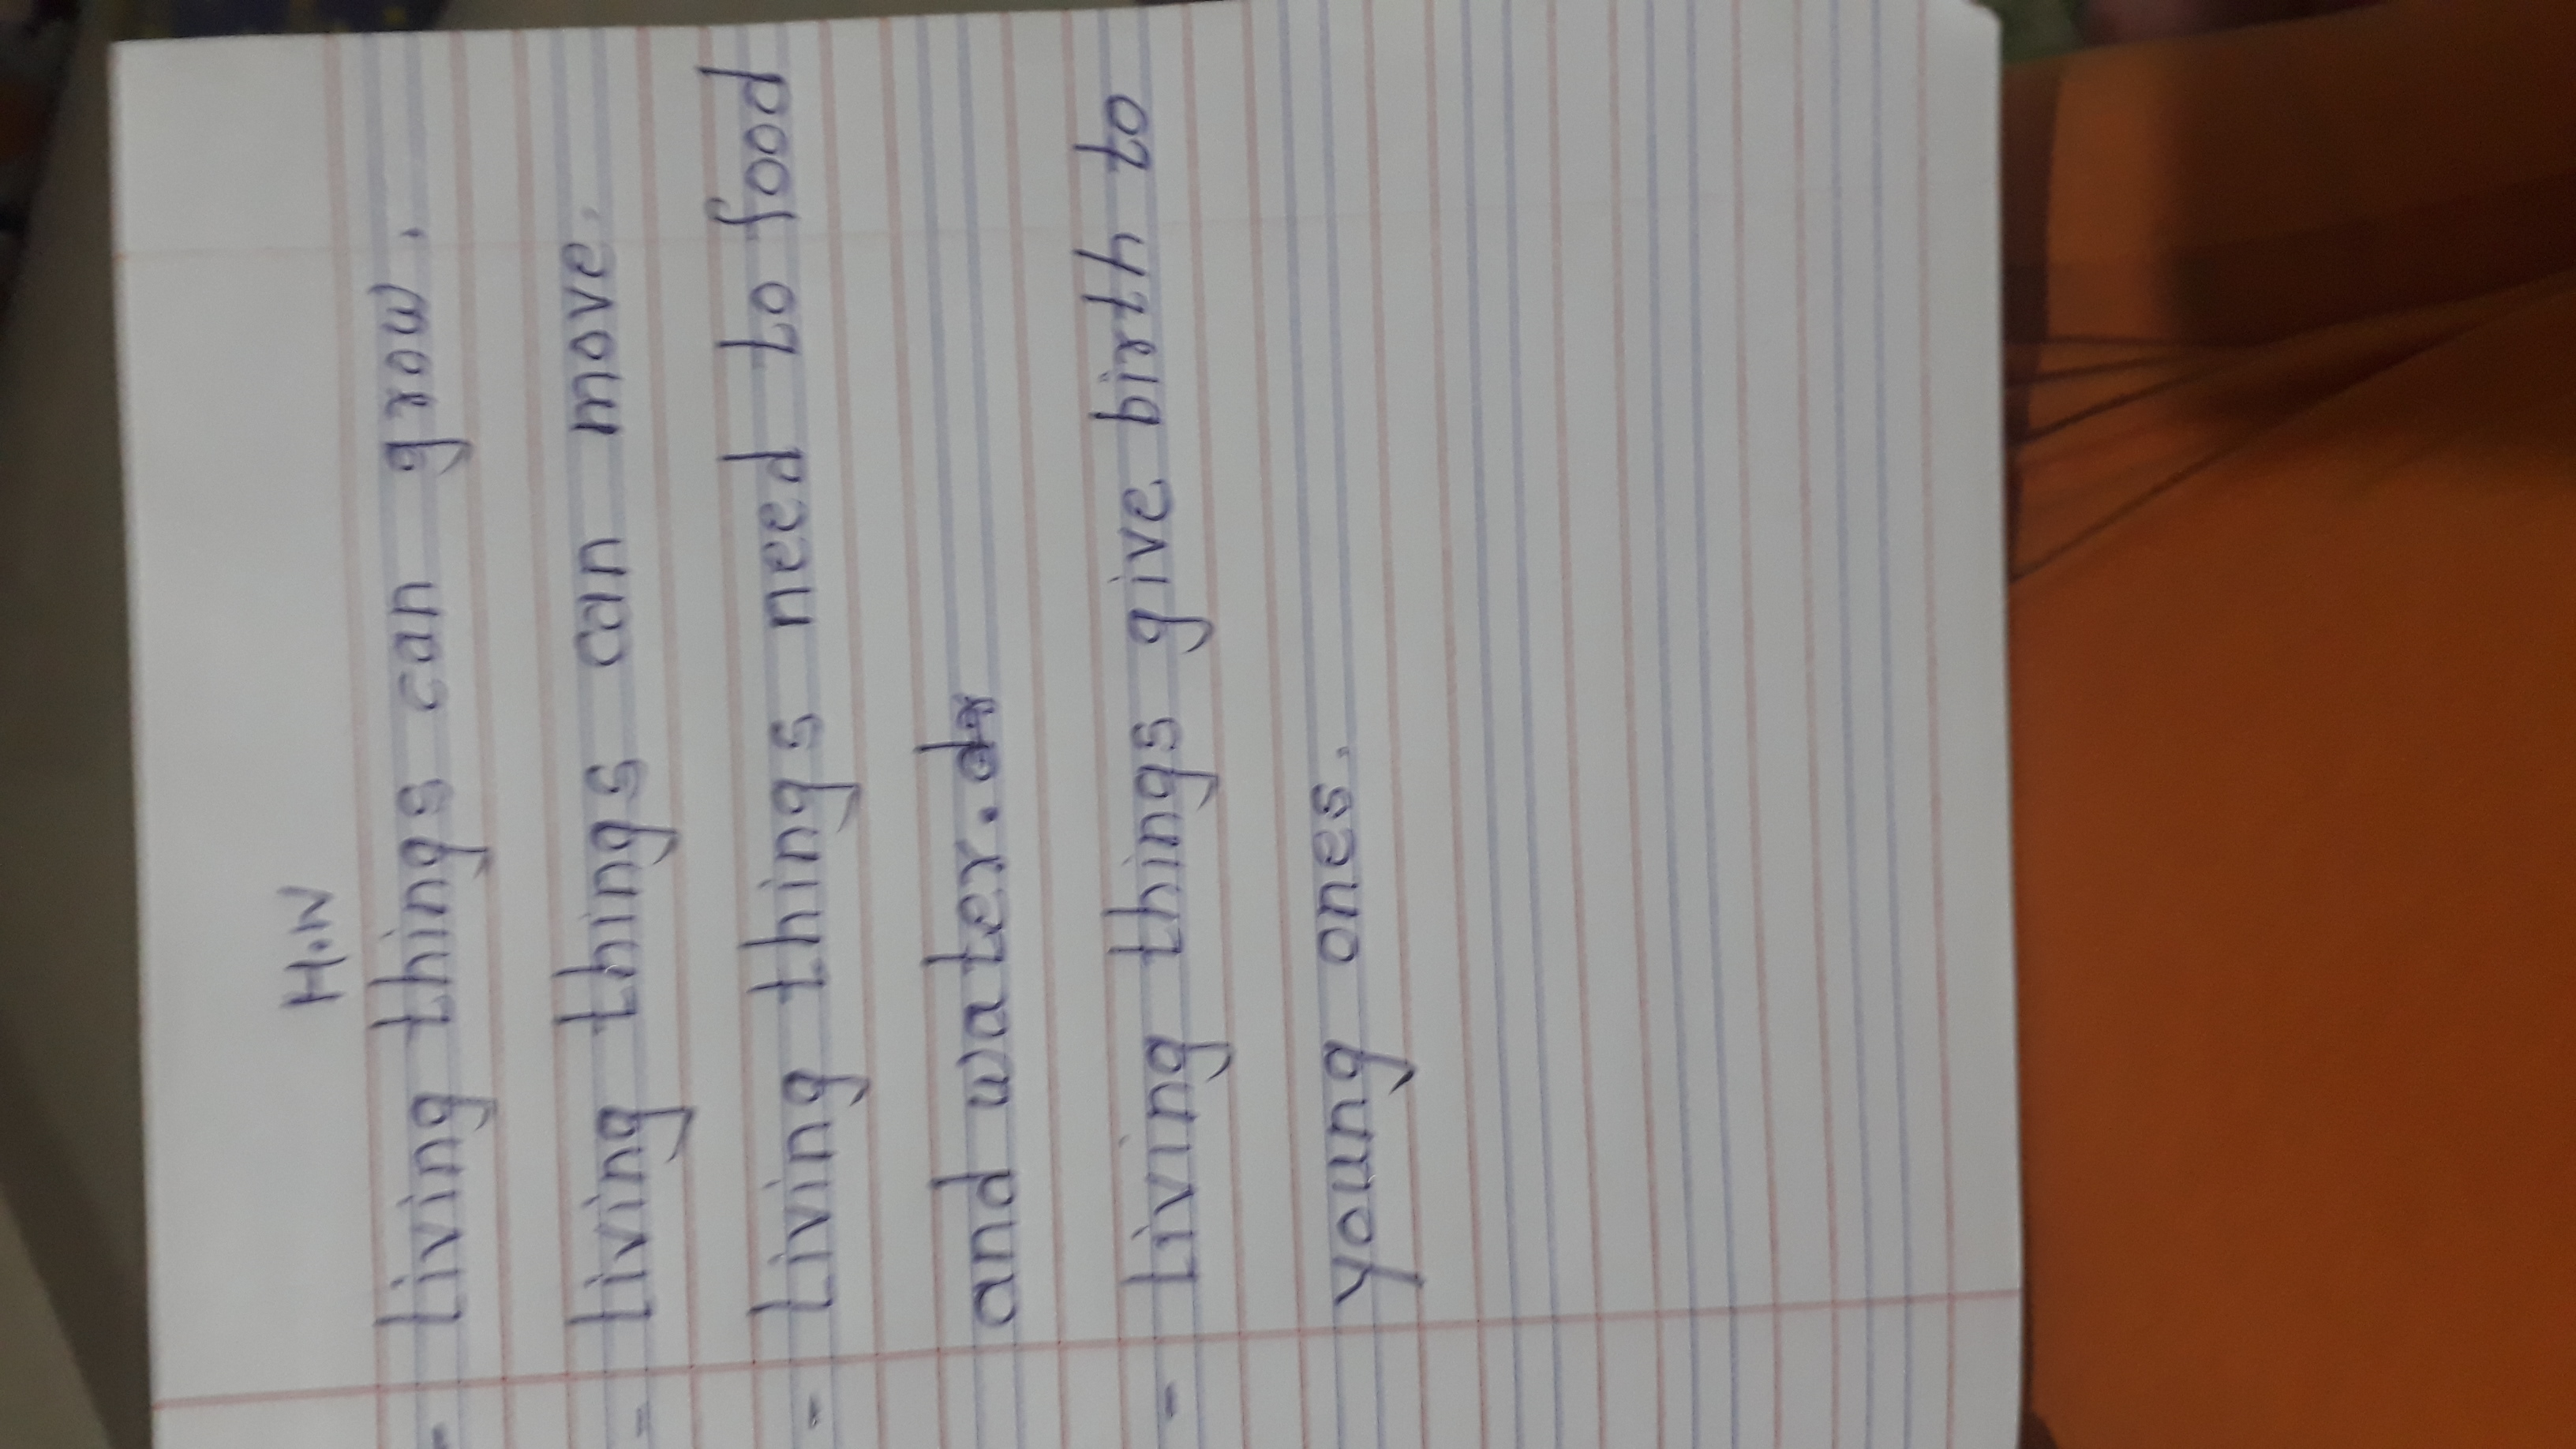 H.W
- Living things can grow.
- Living things can move.
- Living things need to food
and water.
- Living things give birth to
young ones.